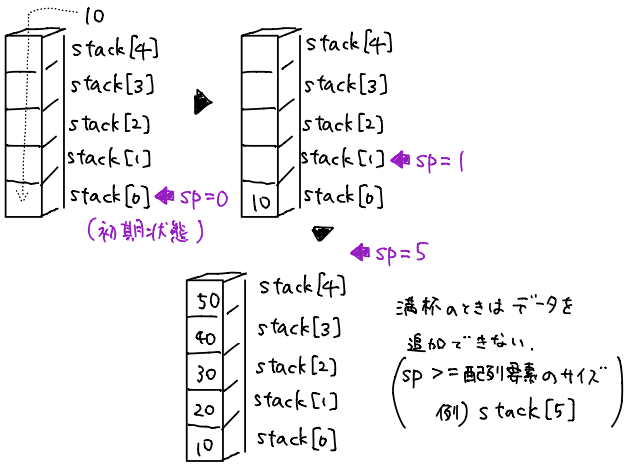 10
stack[4]
stack[3]
stack[2]
stack[1]
stack[0] sp=0
(初期状態)
stack[4]
stack[3]
stack[2]
stack[1] sp=1
10 stack[0]
sp=5
50 stack[4]
40 stack[3]
30 stack[2]
20 stack[1]
10 stack[0]
満杯のときはデータを
追加できない.
(sp >= 配列要素のサイズ
例) stack[5])